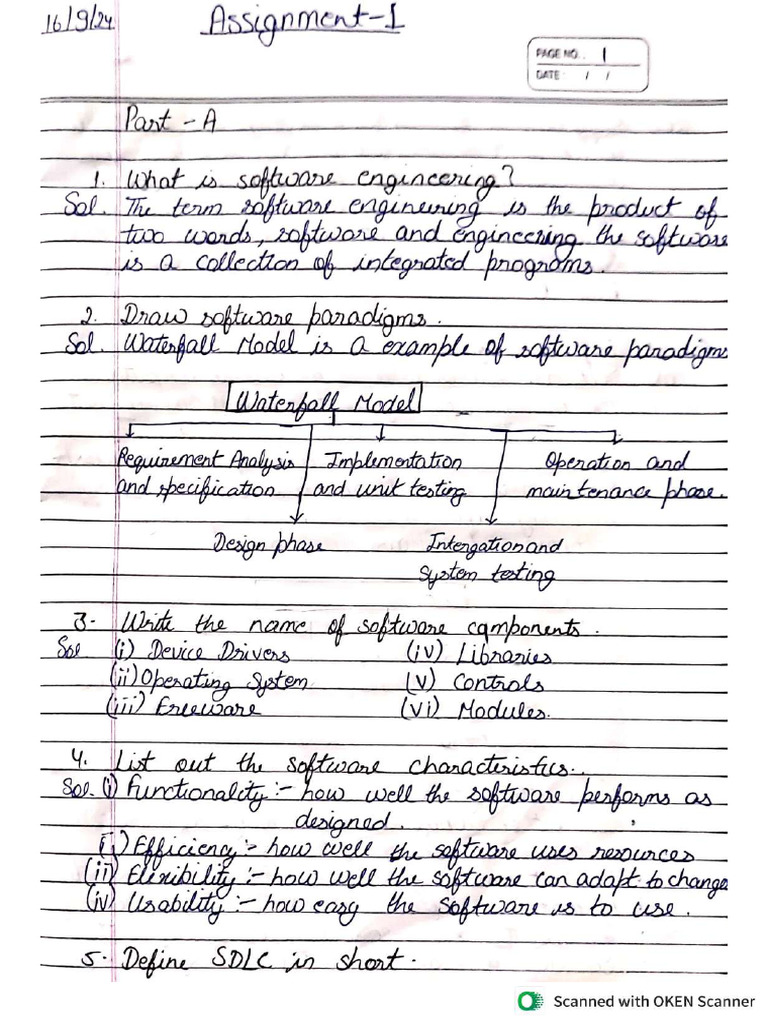 16/9/24 Assignment-1
PAGE NO.. 1
DATE: / /
Part - A
1. What is software engineering?
Sol. The term software engineering is the product of
two words, software and engineering the software
is a collection of integrated programs.
2. Draw software paradigms.
Sol. Waterfall Model is a example of software paradigms
Waterfall Model
Requirement Analysis Implementation Operation and
and specification and unit testing maintenance phase.
Design phase Intergation and
System testing
3. Write the name of software components.
Sol (i) Device Drivers (iv) Libraries
(ii) Operating System (v) Controls
(iii) Freeware (vi) Modules.
4. List out the software characteristics.
Sol. (i) Functionality :- how well the software performs as
designed.
(ii) Efficiency :- how well the software uses resources
(iii) Flexibility :- how well the software can adapt to change
(iv) Usability :- how easy the software is to use.
5. Define SDLC in short.
Scanned with OKEN Scanner